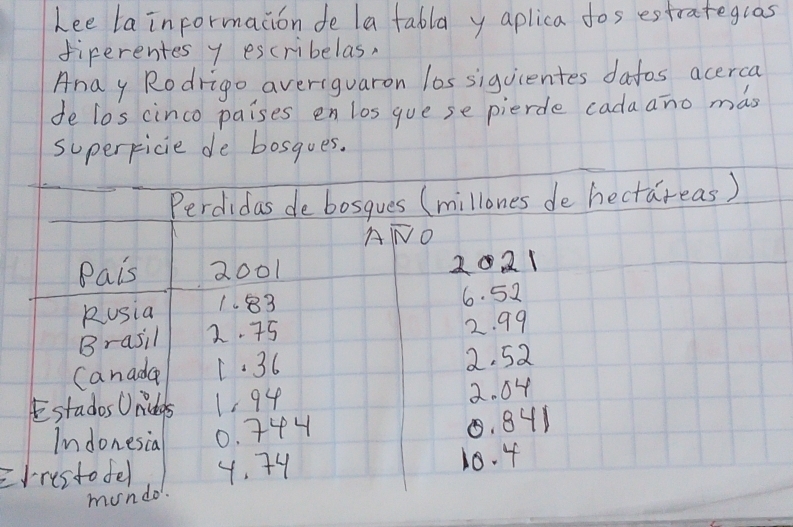 Lee la información de la tabla y aplica dos estrategias
diferentes y escribelas.
Ana y Rodrigo averiguaron los siguientes datos acerca
de los cinco países en los que se pierde cada año más
superficie de bosques.
Perdidas de bosques (millones de hectáreas)
AÑO
País 2001 2021
Rusia 1.83 6.52
Brasil 2.75 2.99
Canada 1.36 2.52
Estados Unidos 1.94 2.04
Indonesia 0.744 0.841
El resto del 4.74 10.4
mundo.